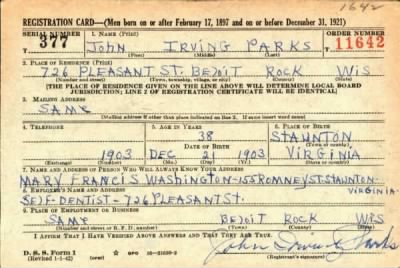 1642
REGISTRATION CARD—(Men born on or after February 17, 1897 and on or before December 31, 1921)
SERIAL NUMBER 1. NAME (Print) ORDER NUMBER
377 JOHN IRVING PARKS 11642
(First) (Middle) (Last)
2. PLACE OF RESIDENCE (Print)
726 PLEASANT ST. BELOIT ROCK WIS
(Number and street) (Town, township, village, or city) (County) (State)
[THE PLACE OF RESIDENCE GIVEN ON THE LINE ABOVE WILL DETERMINE LOCAL BOARD
JURISDICTION; LINE 2 OF REGISTRATION CERTIFICATE WILL BE IDENTICAL]
3. MAILING ADDRESS
SAME
[Mailing address if other than place indicated on line 2. If same insert word same]
4. TELEPHONE 5. AGE IN YEARS 6. PLACE OF BIRTH
38 STAUNTON
DATE OF BIRTH (Town or county)
1903 DEC 21 1903 VIRGINIA
(Exchange) (Number) (Mo.) (Day) (Yr.) (State or country)
7. NAME AND ADDRESS OF PERSON WHO WILL ALWAYS KNOW YOUR ADDRESS
MARY FRANCIS WASHINGTON-155 ROMNEY ST. STAUNTON-
8. EMPLOYER'S NAME AND ADDRESS VIRGINIA
SELF-DENTIST-726 PLEASANT ST.
9. PLACE OF EMPLOYMENT OR BUSINESS
SAME BELOIT ROCK WIS
(Number and street or R. F. D. number) (Town) (County) (State)
I AFFIRM THAT I HAVE VERIFIED ABOVE ANSWERS AND THAT THEY ARE TRUE.
D. S. S. Form 1
(Revised 1-1-42) (over) GPO John Irving Parks
(Registrant's signature)